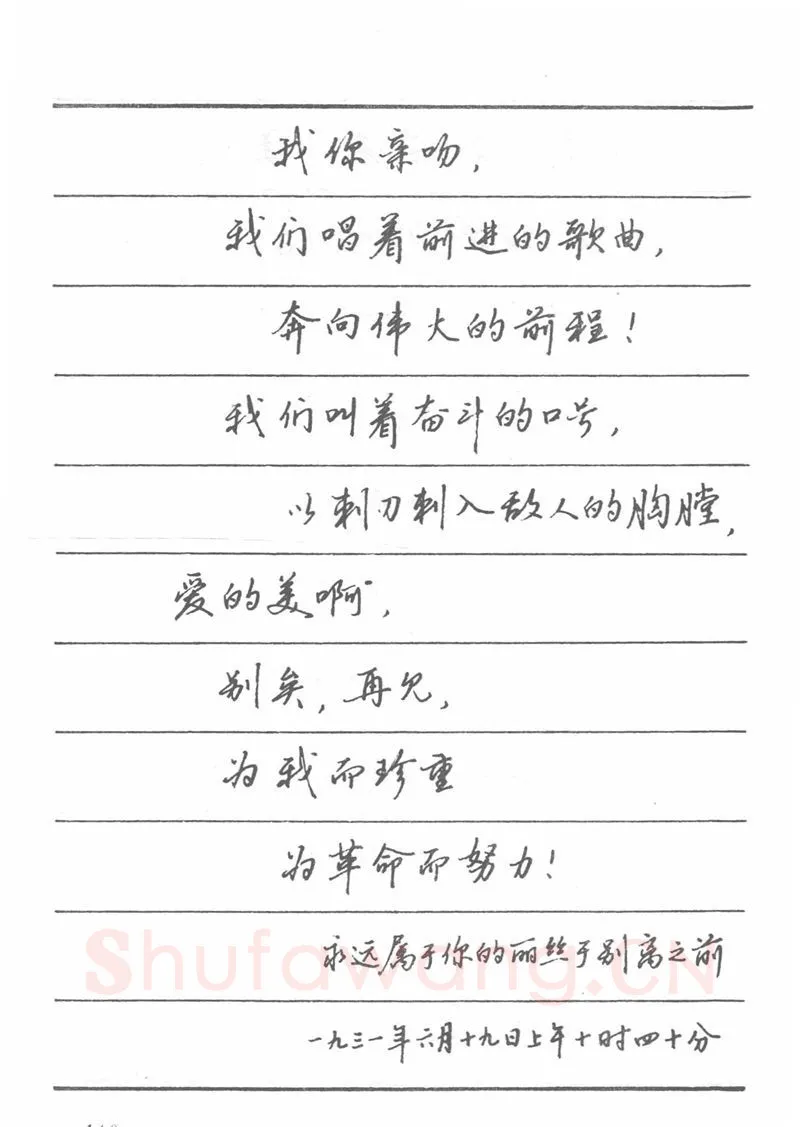 我你亲吻，
我们唱着前进的歌曲，
奔向伟大的前程！
我们叫着奋斗的口号，
以刺刀刺入敌人的胸膛，
爱的美啊，
别矣，再见，
为我而珍重
为革命而努力！
永远属于你的丽丝于别离之前
一九三一年六月十九日上午十时四十分
Shufawang.CN